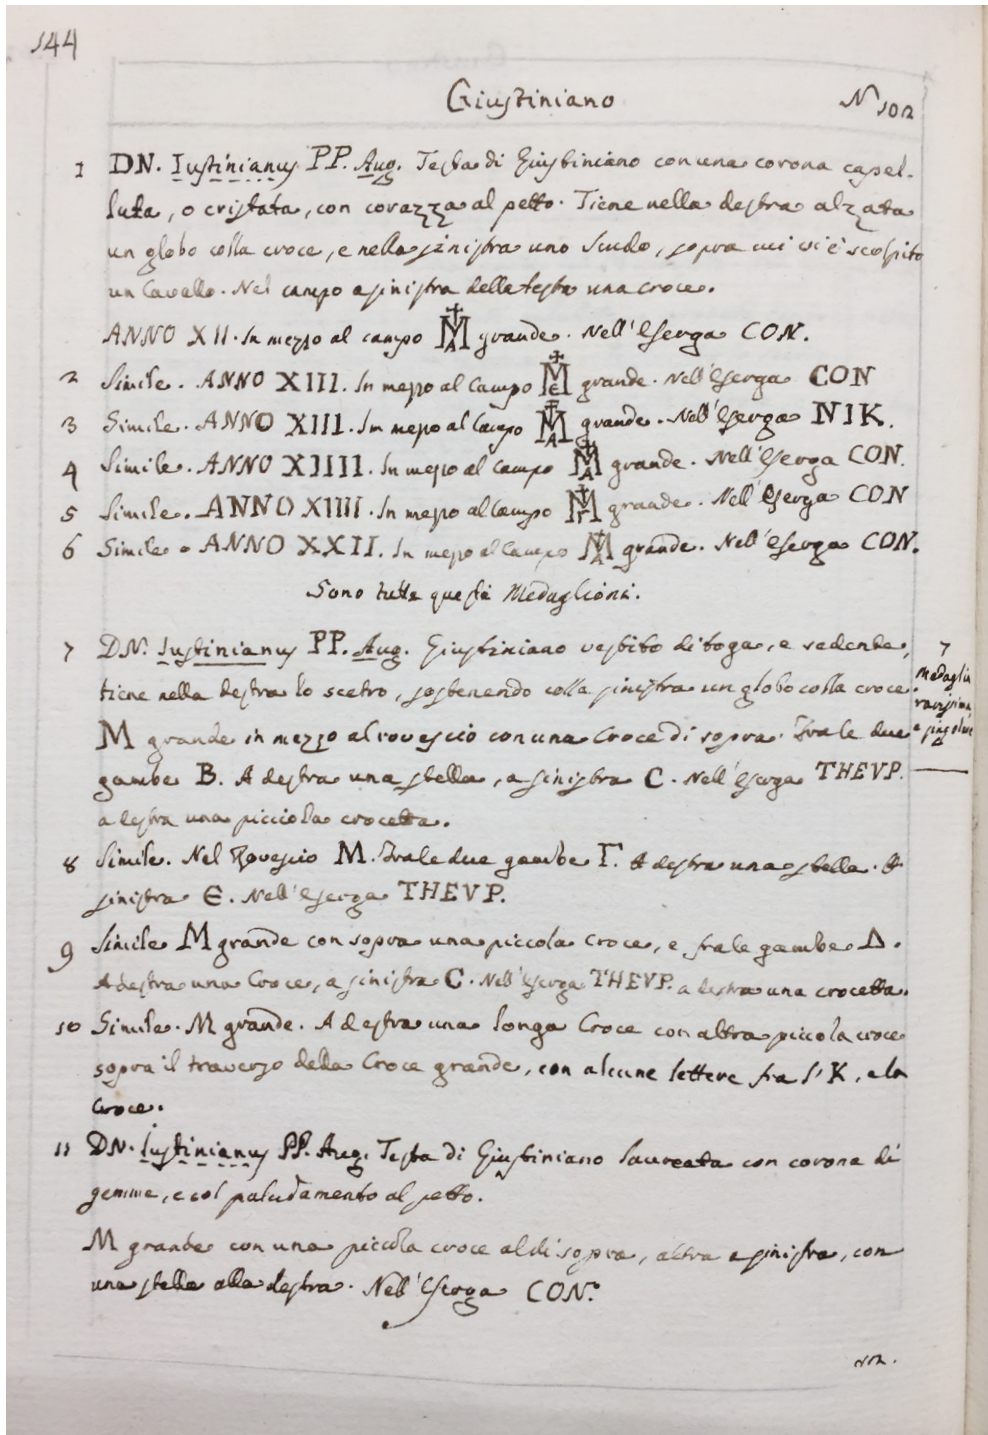 144
Giustiniano
N 102
1 DN. Iustinianus PP. Aug. Testa di Giustiniano con una corona capel-
luta, o cristata, con corazza al petto. Tiene nella destra alzata
un globo colla croce, e nella sinistra uno Scudo, sopra cui vi è scolpito
un Cavallo. Nel campo a sinistra della testa una croce.
ANNO XII. In mezzo al campo M A grande. Nell'Eserga CON.
2 Simile. ANNO XIII. In mezzo al Campo M Є grande. Nell'Eserga CON
3 Simile. ANNO XIII. In mezzo al Campo M A grande. Nell'Eserga NIK.
4 Simile. ANNO XIIII. In mezzo al campo M A grande. Nell'Eserga CON.
5 Simile. ANNO XIIII. In mezzo al Campo M Γ grande. Nell'Eserga CON
6 Simile. ANNO XXII. In mezzo al Campo M A grande. Nell'Eserga CON.
Sono tutte questi Medaglioni.
7 DN. Iustinianus PP. Aug. Giustiniano vestito di toga, e sedente,
tiene nella destra lo scetro, sostenendo colla sinistra un globo colla croce.
M grande in mezzo al rovescio con una Croce di sopra. Tra le due
gambe B. A destra una stella, a sinistra C. Nell'Eserga THEVP.
a destra una picciola crocetta.
7
Medaglia
rarissima
e singolare
8 Simile. Nel Rovescio M. Tra le due gambe Γ. A destra una stella. A
sinistra Є. Nell'Eserga THEVP.
9 Simile M grande con sopra una piccola croce, e fra le gambe Δ.
A destra una Croce, a sinistra C. Nell'Eserga THEVP. a destra una crocetta.
10 Simile. M grande. A destra una longa Croce con altra piccola croce
sopra il traverso della Croce grande, con alcune lettere fra l'K, e la
croce.
11 DN. Iustinianus PP. Aug. Testa di Giustiniano laureata con corona di
gemme, e col paludamento al petto.
M grande con una piccola croce al di sopra, altra a sinistra, con
una stella alla destra. Nell'Eserga CON.